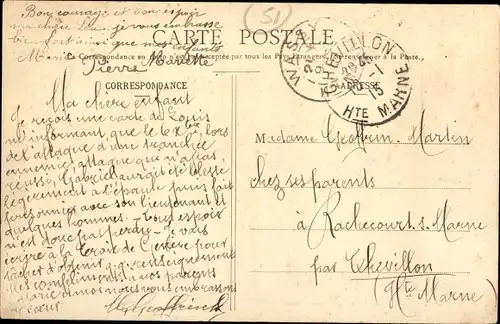 Bon courage et bon espoir
ma chère Léa je vous embrasse
bien fort ainsi que mes enfants
Pierre
(51)
CARTE POSTALE
La Correspondance au recto n'est pas acceptée par tous les Pays Étrangers
à la Poste.)
WASSY
CHEVILLON
20 -1
15
HTE MARNE
CORRESPONDANCE
ADRESSE
Ma chère enfant
Je reçois une carte de Louis
m'informant que le lors
de l'attaque d'une tranchée
ennemie, attaque qui n'a pas
réussi, Gabriel aurait été blessé
légèrement à l'épaule puis fait
prisonnier avec son lieutenant et
quelques hommes. Tout espoir
n'est donc pas perdu. Je vais
écrire à la Croix de Genève pour
tâcher d'obtenir qq. renseignements
Mes compliments à vos parents
Marie et moi nous vous embrassons
de cœur
Madame Geoffrin-Martin
chez ses parents
à Rachecourt s. Marne
par Chevillon
(Hte Marne)